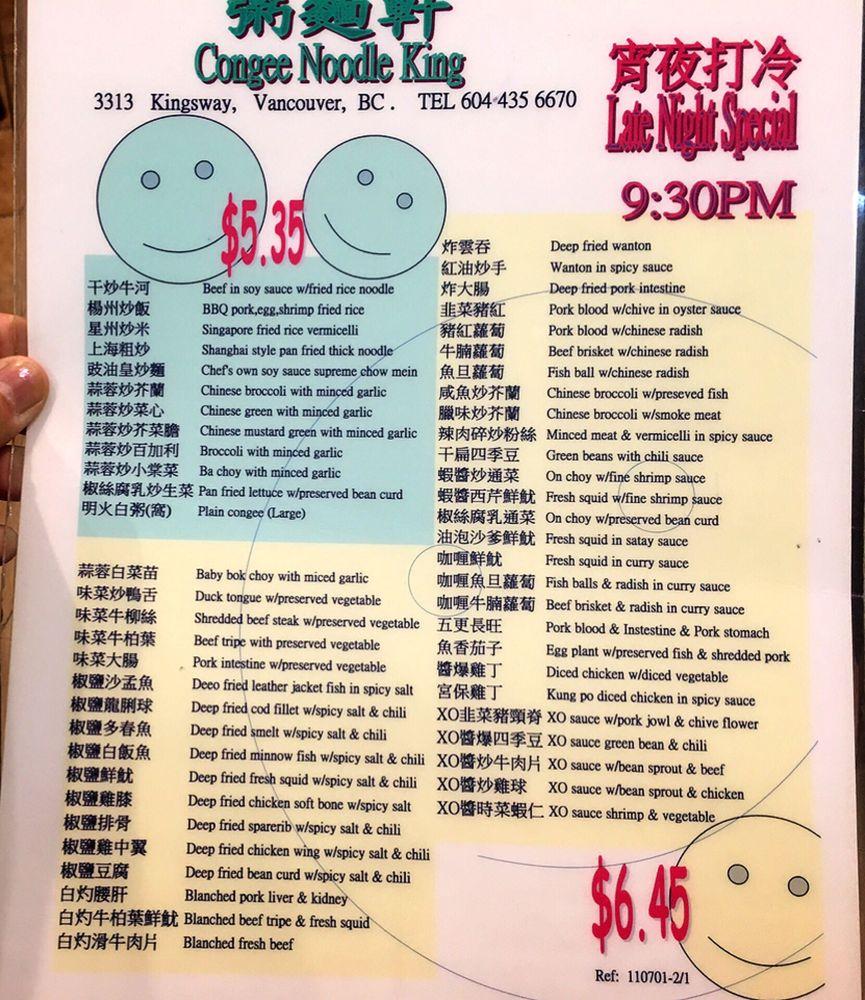 粥麵軒
Congee Noodle King
3313 Kingsway, Vancouver, BC. TEL 604 435 6670
宵夜打冷
Late Night Special
9:30PM
$5.35
干炒牛河 Beef in soy sauce w/fried rice noodle
楊州炒飯 BBQ pork,egg,shrimp fried rice
星州炒米 Singapore fried rice vermicelli
上海粗炒 Shanghai style pan fried thick noodle
豉油皇炒麵 Chef's own soy sauce supreme chow mein
蒜蓉炒芥蘭 Chinese broccoli with minced garlic
蒜蓉炒菜心 Chinese green with minced garlic
蒜蓉炒芥菜膽 Chinese mustard green with minced garlic
蒜蓉炒百加利 Broccoli with minced garlic
蒜蓉炒小棠菜 Ba choy with minced garlic
椒絲腐乳炒生菜 Pan fried lettuce w/preserved bean curd
明火白粥(窩) Plain congee (Large)
蒜蓉白菜苗 Baby bok choy with miced garlic
味菜炒鴨舌 Duck tongue w/preserved vegetable
味菜牛柳絲 Shredded beef steak w/preserved vegetable
味菜牛柏葉 Beef tripe with preserved vegetable
味菜大腸 Pork intestine w/preserved vegetable
椒鹽沙孟魚 Deeo fried leather jacket fish in spicy salt
椒鹽龍脷球 Deep fried cod fillet w/spicy salt & chili
椒鹽多春魚 Deep fried smelt w/spicy salt & chili
椒鹽白飯魚 Deep fried minnow fish w/spicy salt & chili
椒鹽鮮魷 Deep fried fresh squid w/spicy salt & chili
椒鹽雞膝 Deep fried chicken soft bone w/spicy salt
椒鹽排骨 Deep fried sparerib w/spicy salt & chili
椒鹽雞中翼 Deep fried chicken wing w/spicy salt & chili
椒鹽豆腐 Deep fried bean curd w/spicy salt & chili
白灼腰肝 Blanched pork liver & kidney
白灼牛柏葉鮮魷 Blanched beef tripe & fresh squid
白灼滑牛肉片 Blanched fresh beef
炸雲吞 Deep fried wanton
紅油炒手 Wanton in spicy sauce
炸大腸 Deep fried pork intestine
韭菜豬紅 Pork blood w/chive in oyster sauce
豬紅蘿蔔 Pork blood w/chinese radish
牛腩蘿蔔 Beef brisket w/chinese radish
魚旦蘿蔔 Fish ball w/chinese radish
咸魚炒芥蘭 Chinese broccoli w/preseved fish
臘味炒芥蘭 Chinese broccoli w/smoke meat
辣肉碎炒粉絲 Minced meat & vermicelli in spicy sauce
干扁四季豆 Green beans with chili sauce
蝦醬炒通菜 On choy w/fine shrimp sauce
蝦醬西芹鮮魷 Fresh squid w/fine shrimp sauce
椒絲腐乳通菜 On choy w/preserved bean curd
油泡沙爹鮮魷 Fresh squid in satay sauce
咖喱鮮魷 Fresh squid in curry sauce
咖喱魚旦蘿蔔 Fish balls & radish in curry sauce
咖喱牛腩蘿蔔 Beef brisket & radish in curry sauce
五更長旺 Pork blood & Instestine & Pork stomach
魚香茄子 Egg plant w/preserved fish & shredded pork
醬爆雞丁 Diced chicken w/diced vegetable
宮保雞丁 Kung po diced chicken in spicy sauce
XO韭菜豬頸脊 XO sauce w/pork jowl & chive flower
XO醬爆四季豆 XO sauce green bean & chili
XO醬炒牛肉片 XO sauce w/bean sprout & beef
XO醬炒雞球 XO sauce w/bean sprout & chicken
XO醬時菜蝦仁 XO sauce shrimp & vegetable
$6.45
Ref: 110701-2/1